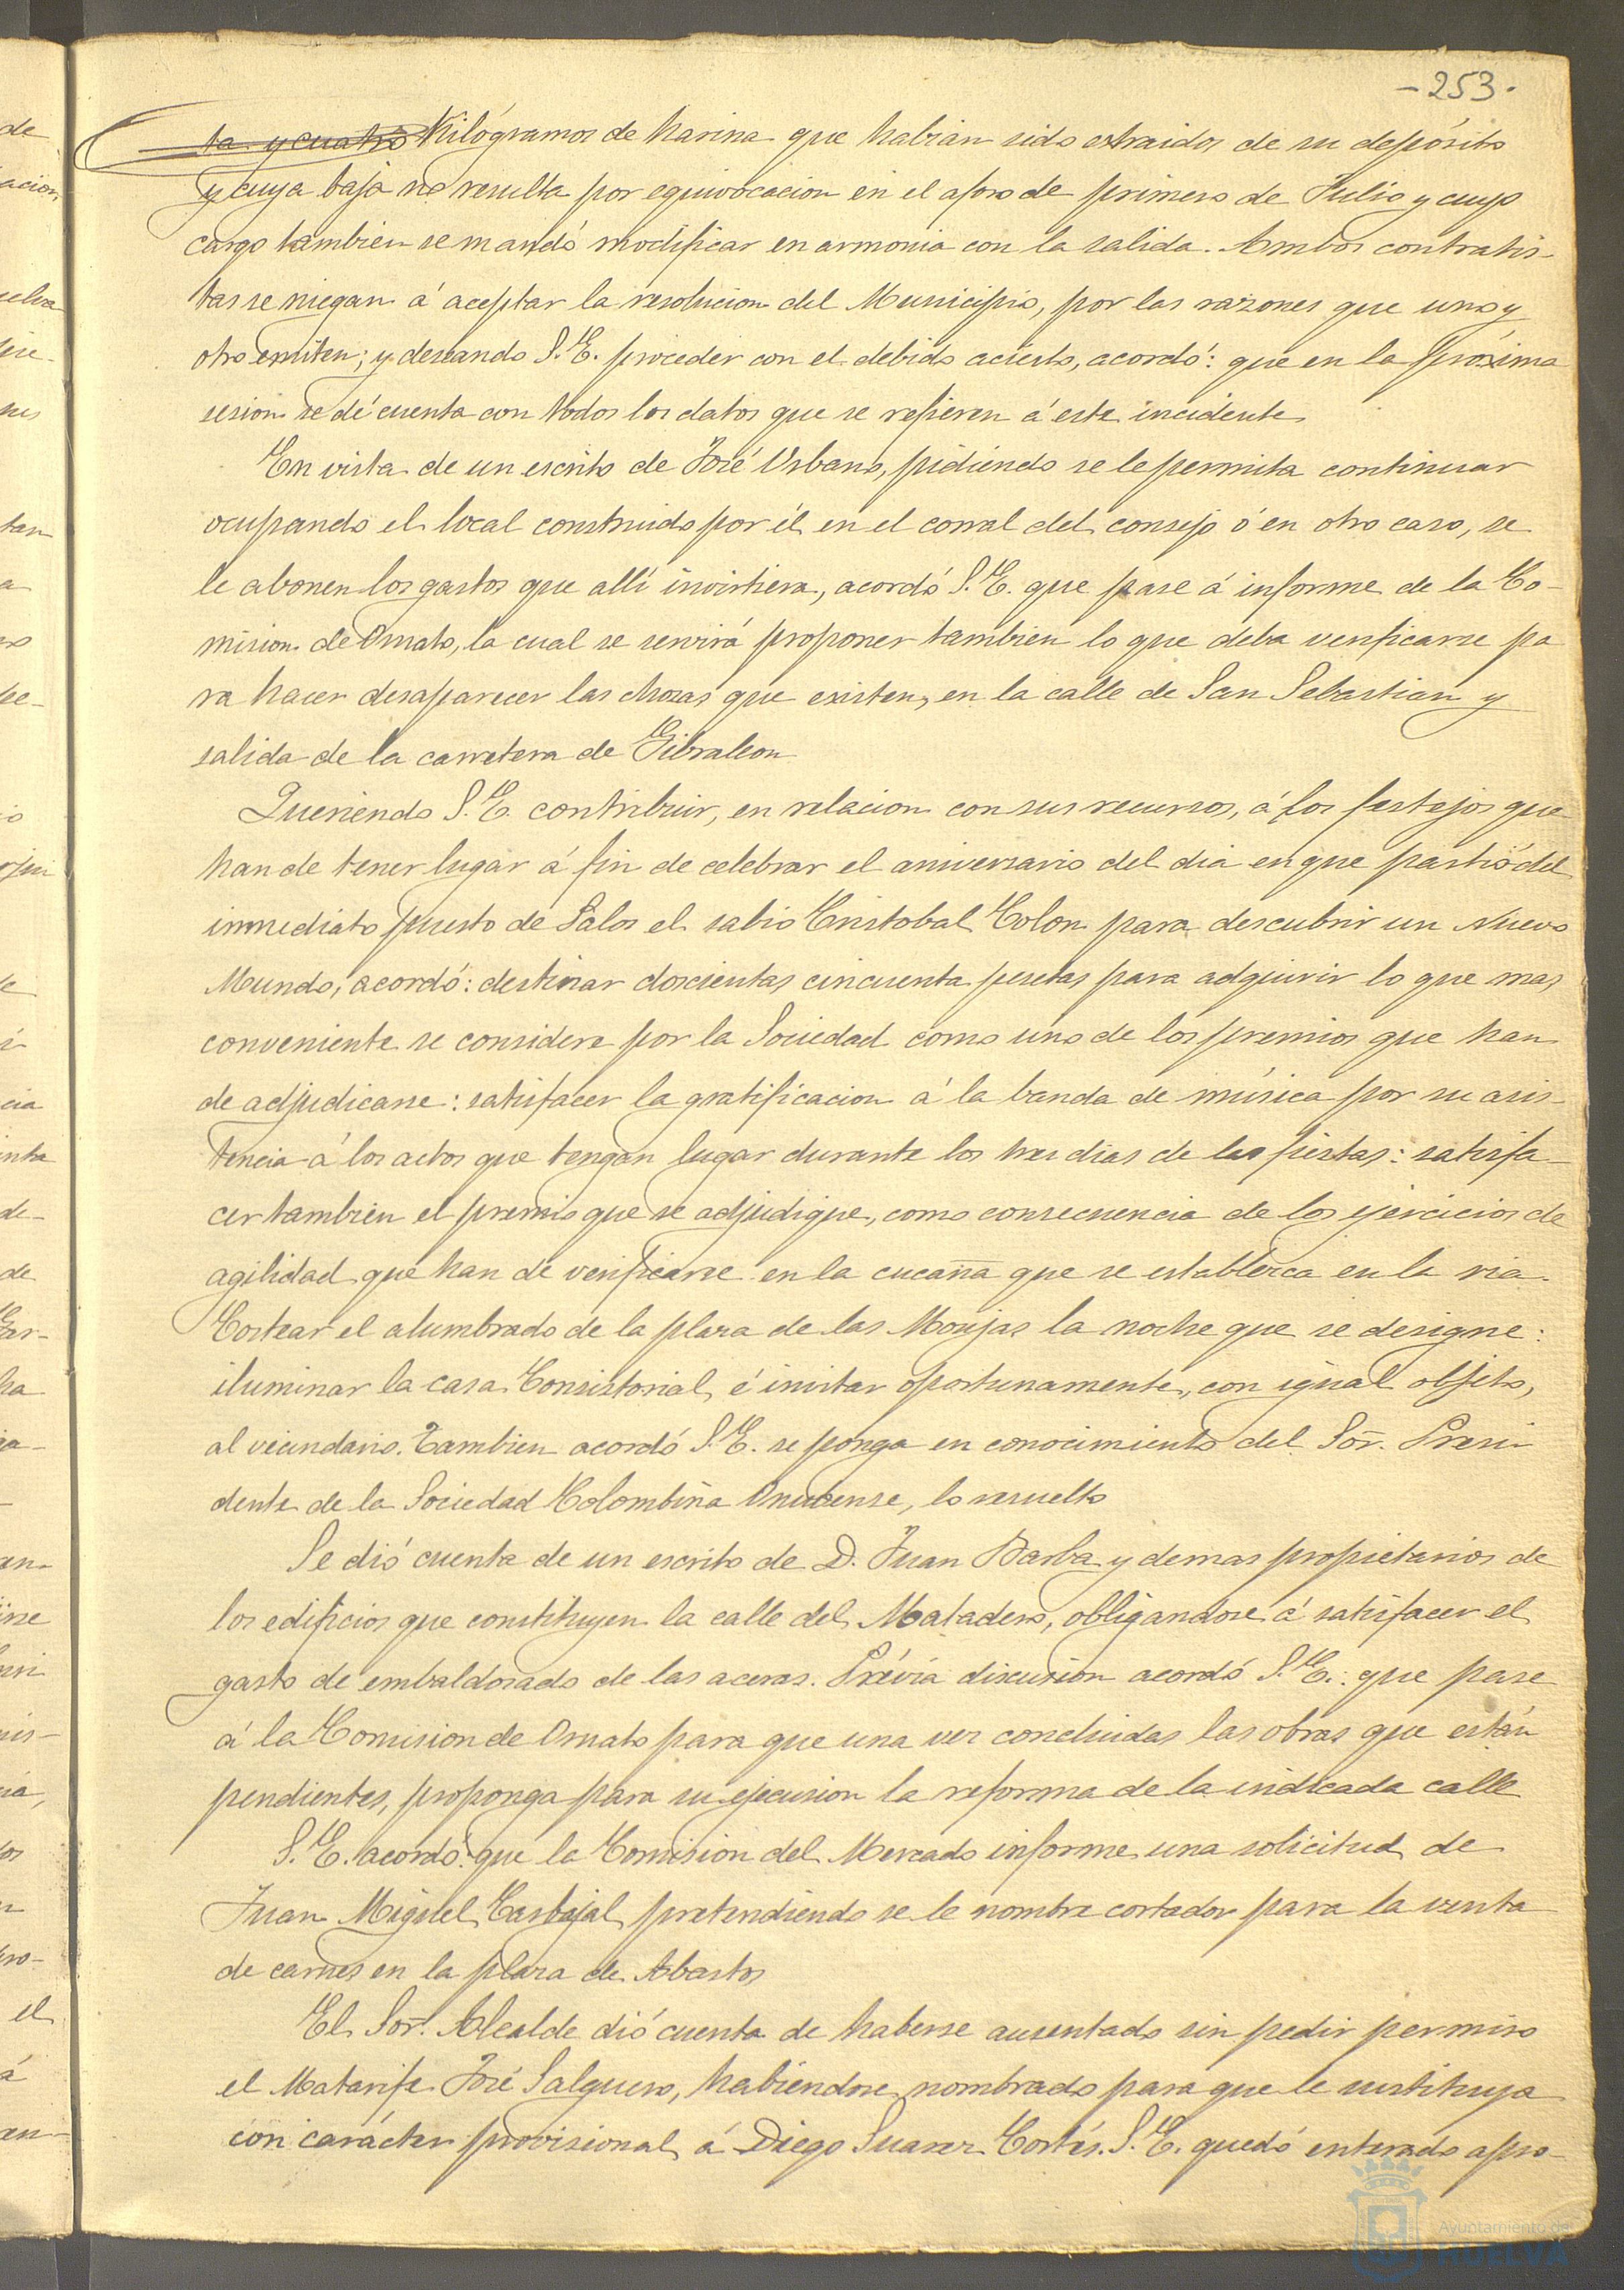 - 253 -
ta y cuatro Kilógramos de harina que habian sido estraidos de su depósito
y cuya baja no resulta por equivocacion en el aforo de primero de Julio y cuyo
cargo tambien se mandó modificar en armonia con la salida. Ambos contratis-
tas se niegan á aceptar la resolucion del Municipio, por las razones que uno y
otro emiten; y deseando S.E. proceder con el debido acierto, acordó: que en la próxima
sesion se dé cuenta con todos los datos que se refieren á este incidente
En vista de un escrito de José Urbano, pidiendo se le permita continuar
ocupando el local construido por él en el corral del consejo ó en otro caso, se
le abonen los gastos que allí invirtiera, acordó S.E. que pase á informe de la Co-
mision de Ornato, la cual se servirá proponer tambien lo que deba verificarse pa
ra hacer desaparecer las chozas que existen, en la calle de San Sebastian y
salida de la carretera de Gibraleon
Queriendo S.E. contribuir, en relacion con sus recursos, á los festejos que
han de tener lugar á fin de celebrar el aniversario del dia en que partió del
inmediato puerto de Palos el sabio Cristobal Colon para descubrir un Nuevo
Mundo, acordó: destinar doscientas cincuenta pesetas para adquirir lo que mas
conveniente se considere por la Sociedad como uno de los premios que han
de adjudicarse: satisfacer la gratificacion á la banda de música por su asis-
tencia á los actos que tengan lugar durante los tres dias de las fiestas: satisfa-
cer tambien el premio que se adjudique, como consecuencia de los ejercicios de
agilidad que han de verificarse en la cucaña que se establezca en la ria.
Costear el alumbrado de la plaza de las Monjas la noche que se designe:
iluminar la casa Consistorial, é invitar oportunamente, con igual objeto,
al vecindario. Tambien acordó S.E. se ponga en conocimiento del Sor. Presi
dente de la Sociedad Colombina Onubense, lo resuelto
Se dió cuenta de un escrito de D. Juan Barba y demas propietarios de
los edificios que constituyen la calle del Matadero, obligandose á satisfacer el
gasto de embaldosado de las aceras. Prévia discusion acordó S.E.: que pase
á la Comision de Ornato para que una vez concluidas las obras que están
pendientes, proponga para su ejecusion la reforma de la indicada calle
S.E. acordó: que la Comision del Mercado informe una solicitud de
Juan Miguel Carbajal, pretendiendo se le nombre cortador para la venta
de carnes en la plaza de Abastos
El Sor. Alcalde dió cuenta de haberse ausentado sin pedir permiso
el Matarife José Salguero, habiéndose nombrado para que le sustituya
con carácter provisional, á Diego Suarez Cortés. S.E. quedó enterado apro-
Ayuntamiento de
HUELVA